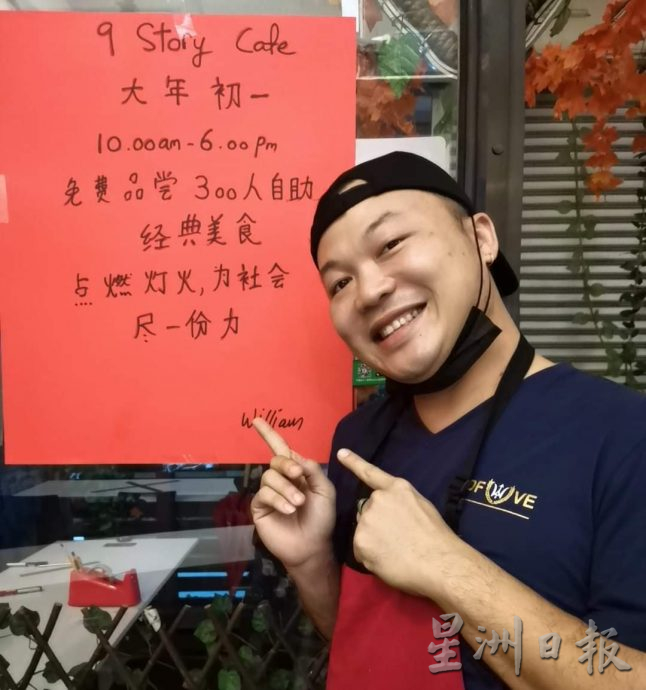 9 Story Cafe
大年初一
10.00am-6.00pm
免费品尝 300人自助
经典美食
点燃灯火,为社会
尽一份力
William
OF VE
星洲日报